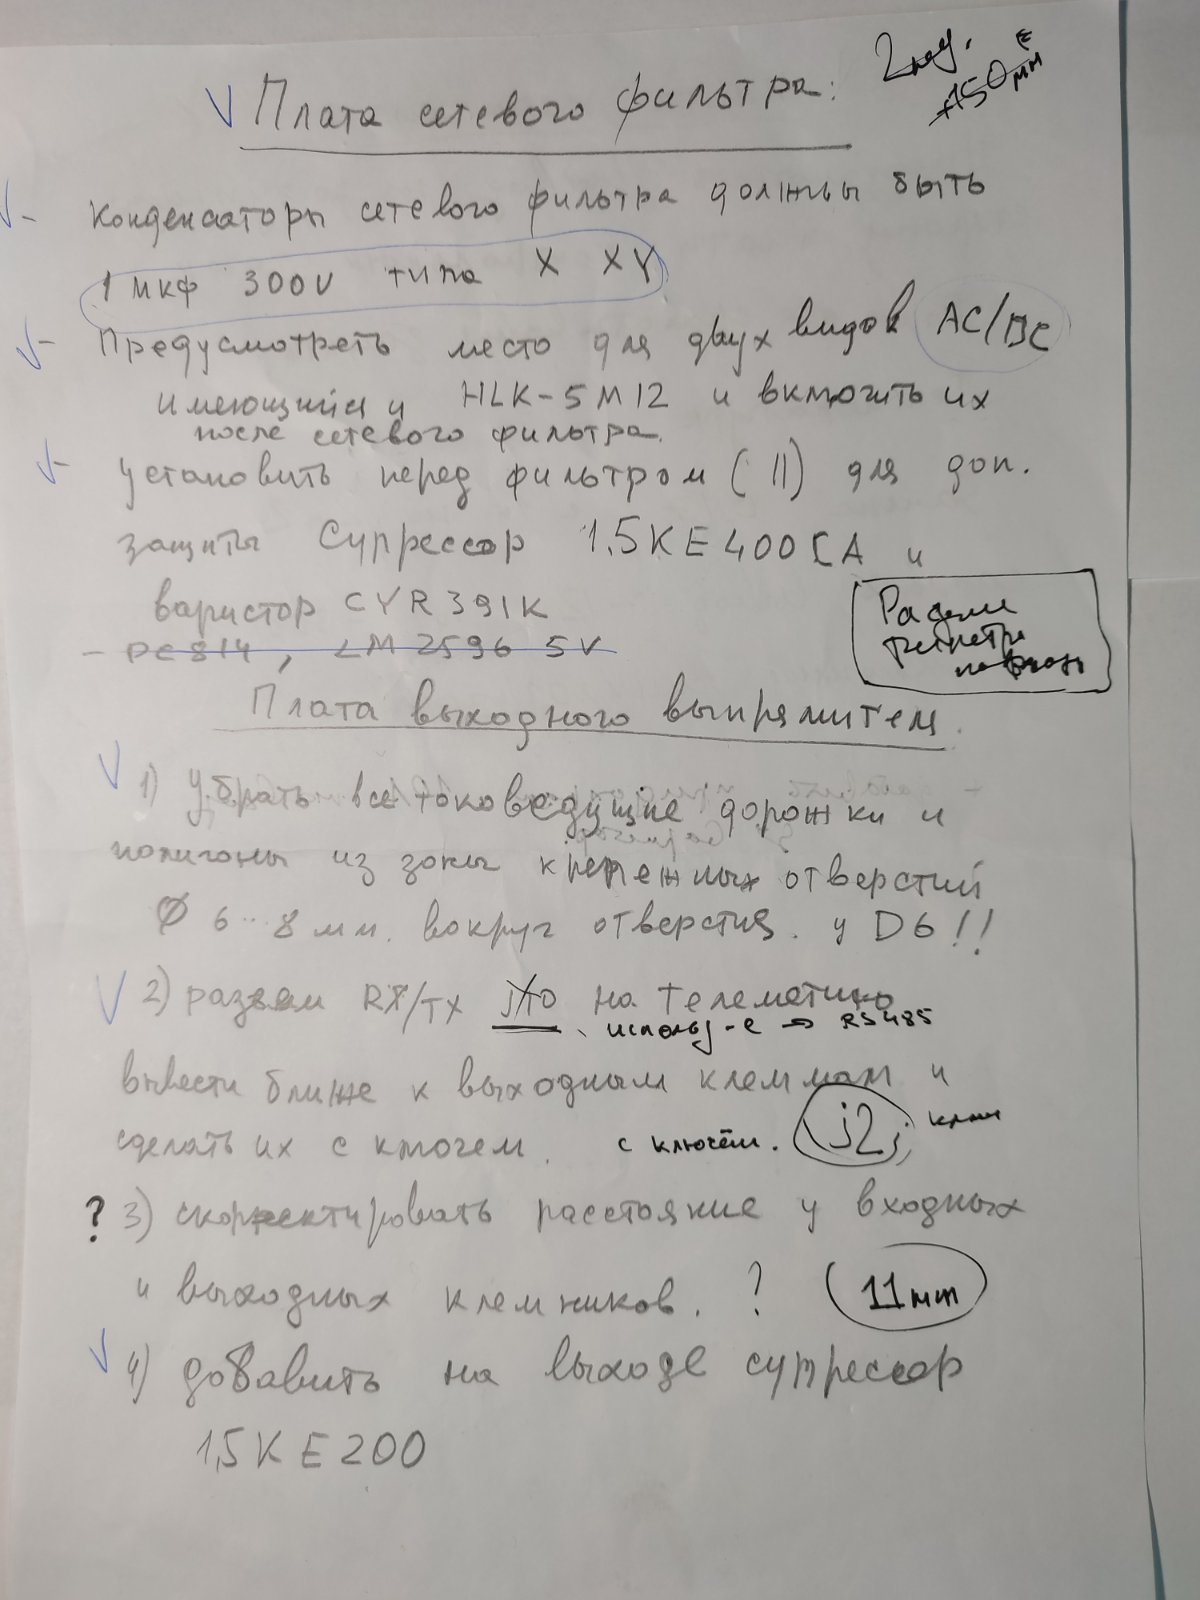 Плата сетевого фильтра:
+150 мм
- Конденсаторы сетевого фильтра должны быть
1 мкф 300V типа X XY
- Предусмотреть место для двух видов AC/DC
имеющийся и HLK-5M12 и включить их
после сетевого фильтра.
- установить перед фильтром ( || ) для доп.
защиты Супрессор 1,5KE400CA и
варистор CYR391K
- PC814, LM2596 5V
Плата выходного выпрямителя.
1) Убрать все токоведущие дорожки и
полигоны из зоны крепежных отверстий
Ø 6-8 мм. вокруг отверстия. у D6!!
2) разъем RX/TX j10 на телеметрию
использ-е → RS485
вывести ближе к выходным клеммам и
сделать их с ключем. с ключём. j2j
? 3) скорректировать расстояние у входных
и выходных клемников. ? 11мм
4) добавить на выходе супрессор
1,5KE200